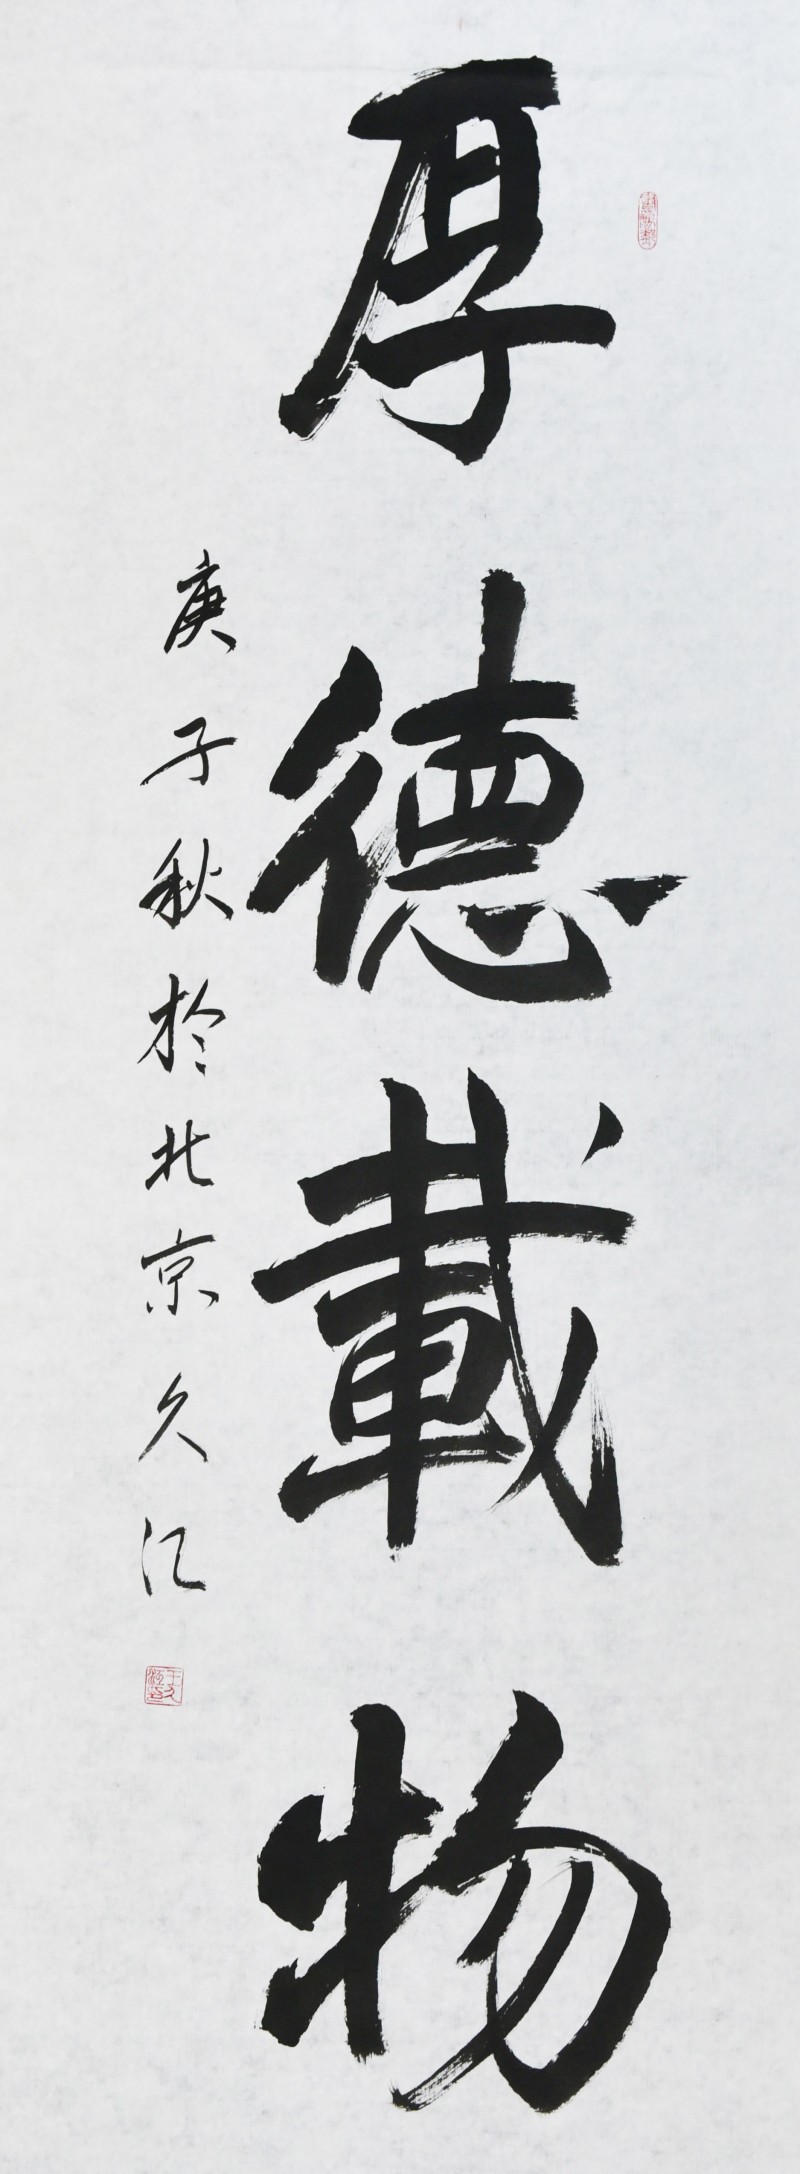 厚德載物
庚子秋於北京久江